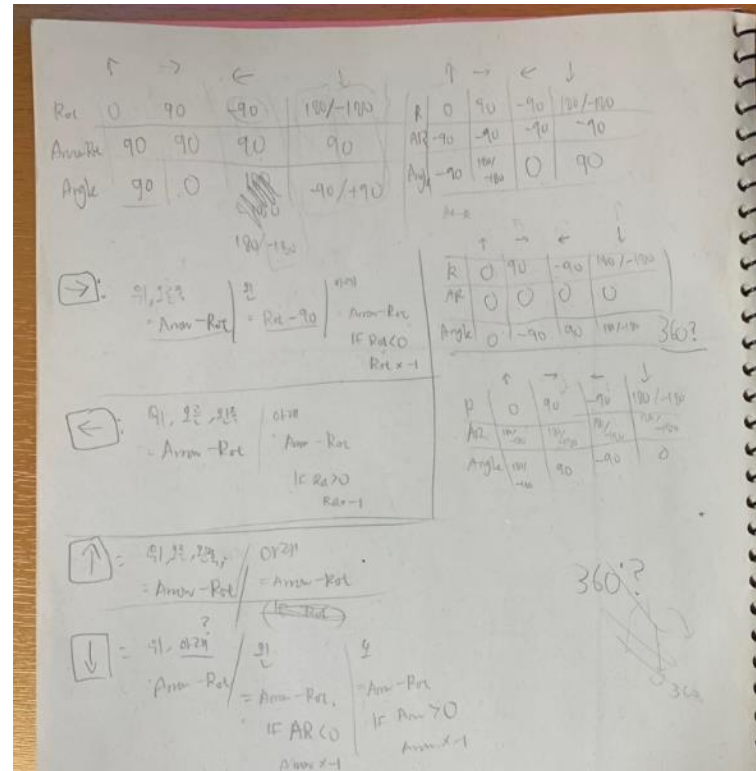 ↑ → ← ↓
Rot 0 90 -90 180/-180
ArrowRot 90 90 90 90
Angle 90 0 180/-180 -90/+90
↑ → ← ↓
R 0 90 -90 180/-180
AR -90 -90 -90 -90
Angle -90 180/-180 0 90
↑ → ← ↓
R 0 90 -90 180/-180
AR 0 0 0 0
Angle 0 -90 90 180/-180 360?
↑ → ← ↓
R 0 90 -90 180/-180
AR 180/-180 180/-180 180/-180 180/-180
Angle 180/-180 90 -90 0
→ : 위, 오른쪽
= Arrow-Rot
왼
= Rot-90
아래
Arrow-Rot
IF Rot<0
Rot x-1
← : 위, 오른, 왼쪽
= Arrow-Rot
아래
Arrow-Rot
IF Rot>0
Rot x-1
↑ = 위, 오른, 왼쪽
= Arrow-Rot
아래
= Arrow-Rot
↓ = 위, 아래 ?
Arrow-Rot
왼
= Arrow-Rot
IF AR<0
Arrow x-1
오
= Arrow-Rot
IF Arrow>0
Arrow x-1
360°?
360